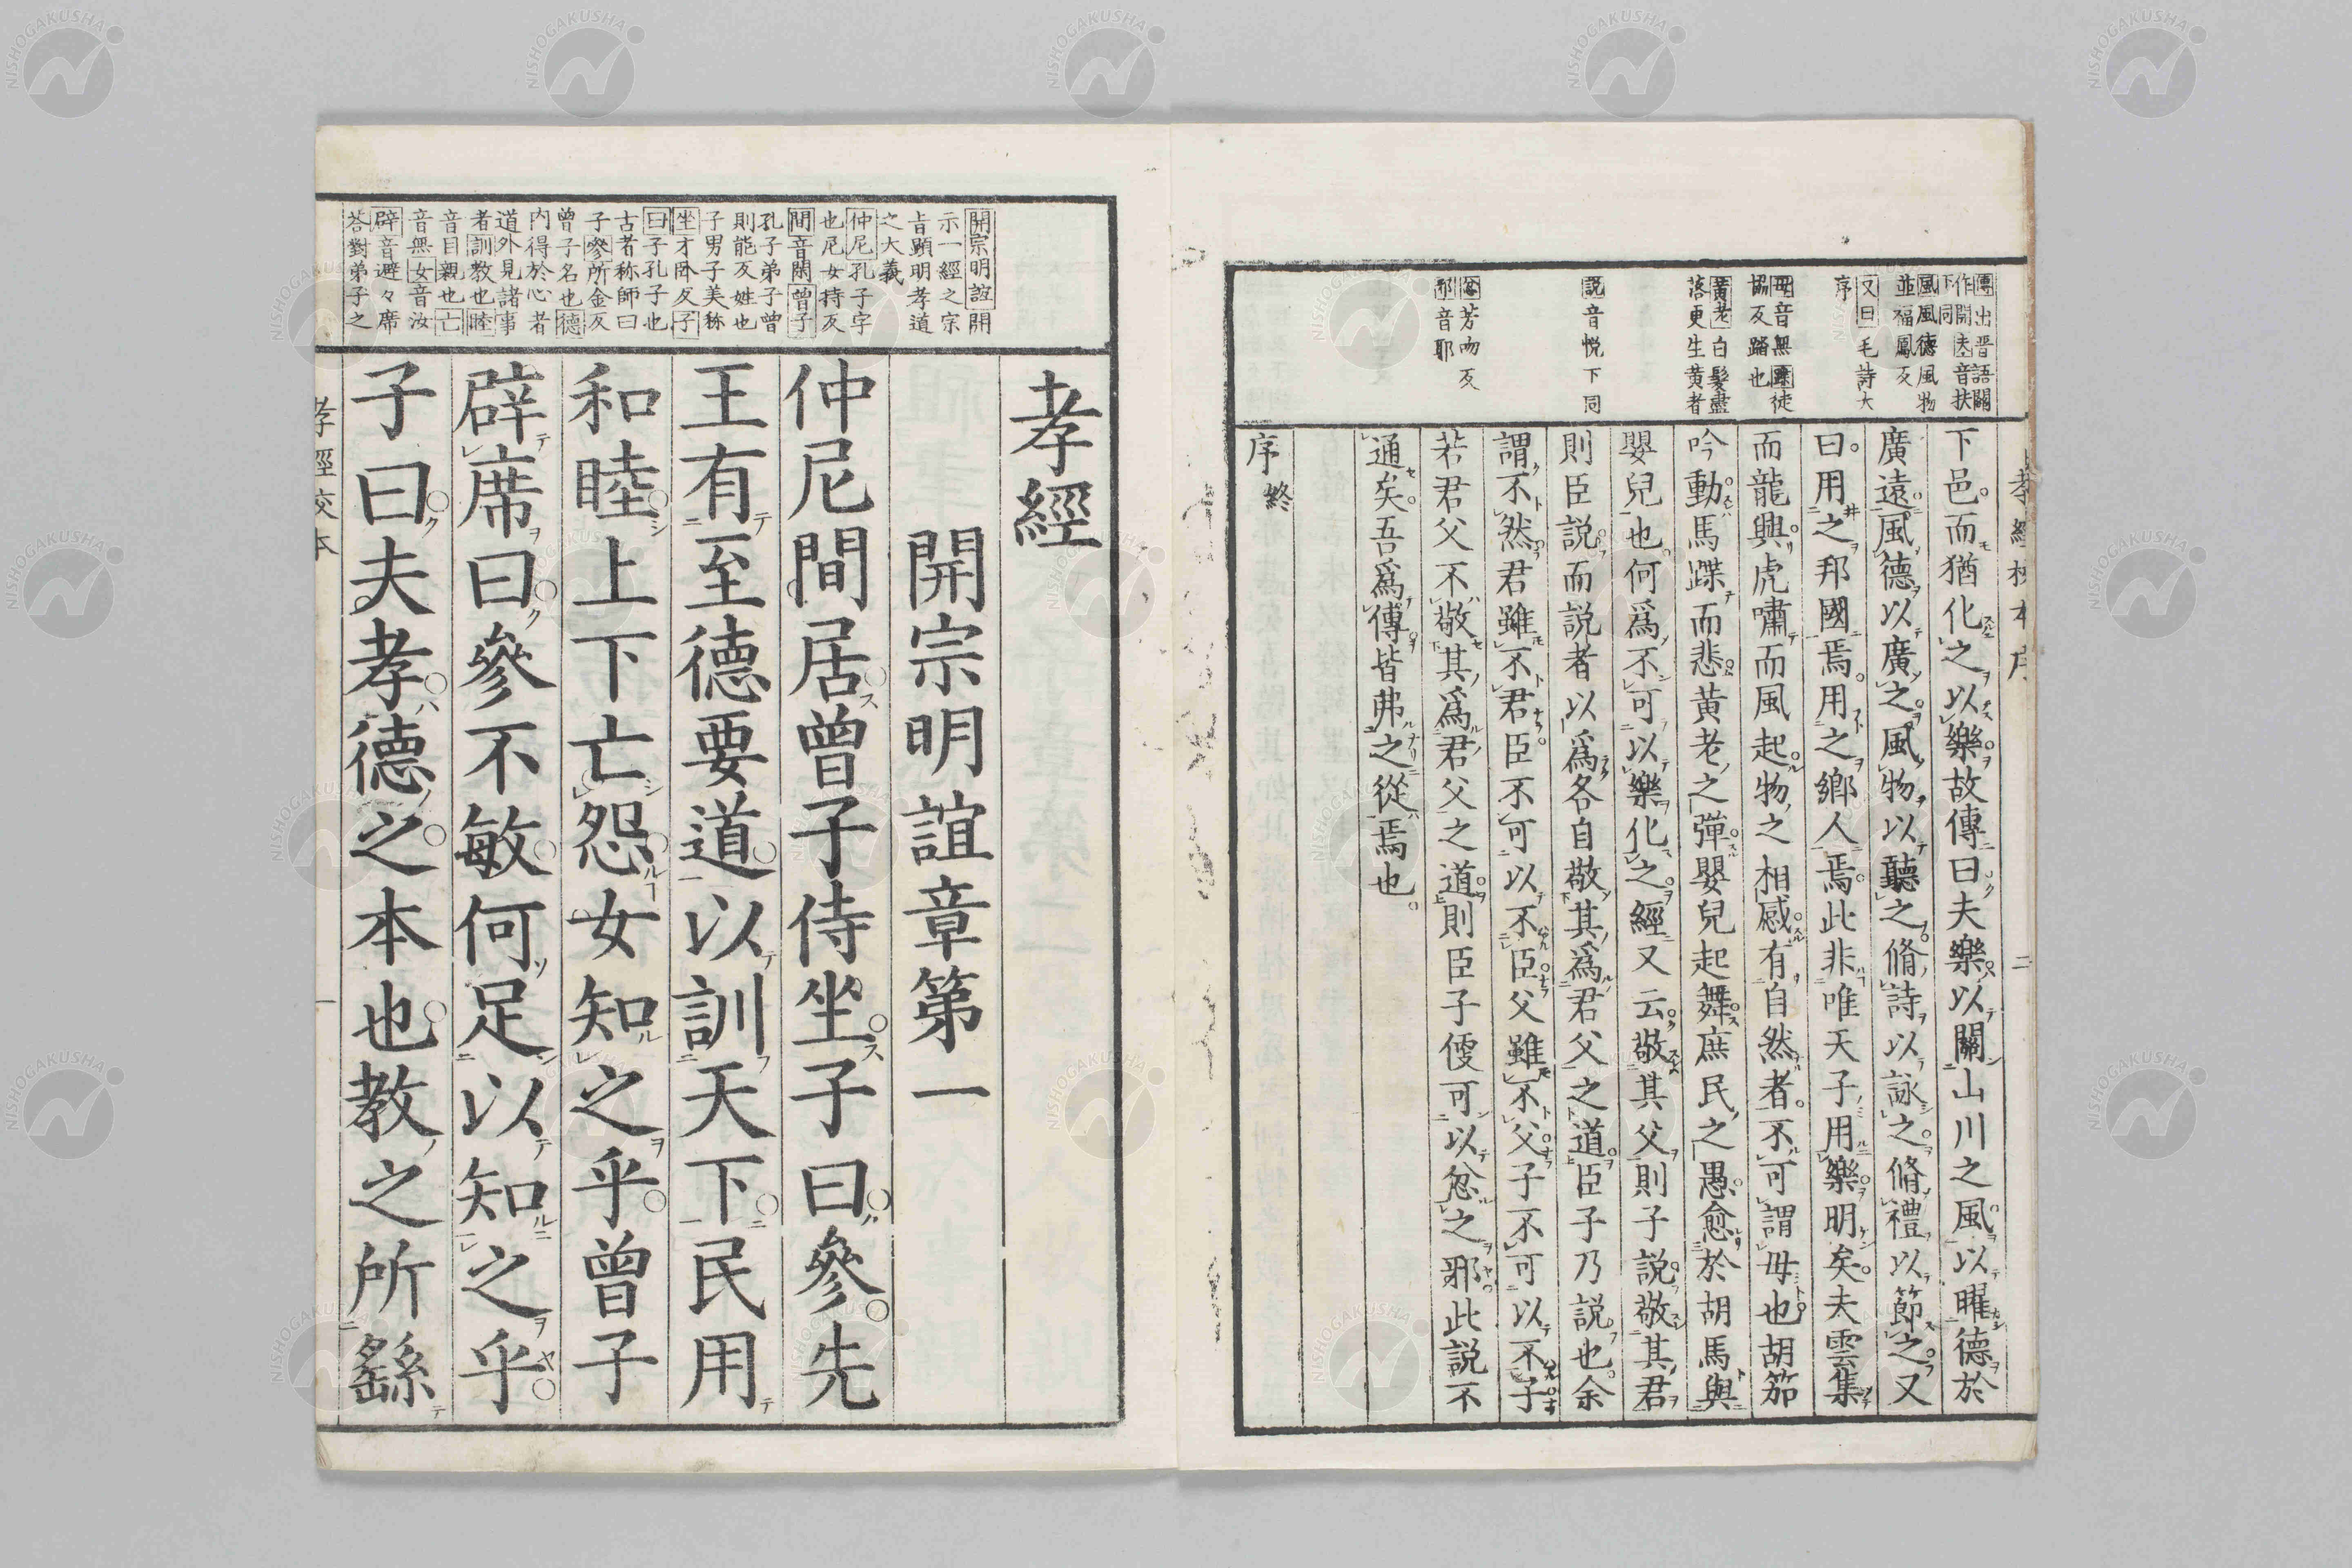 傳出晋語關
作開夫音扶
下同
風風德風物
並福鳳反
又曰毛詩大
序
毋音無蹀徒
協反踏也
黃老白髮盡
落更生黃者
說音悅下同
忿芳吻反
邪音耶
下邑而猶化之以樂故傳曰夫樂以關山川之風以曜德於
廣遠風德以廣之風物以聽之脩詩以詠之脩禮以節之又
曰用之邦國焉用之鄉人焉此非唯天子用樂明矣夫雲集
而龍興虎嘯而風起物之相感有自然者不可謂毋也胡笳
吟動馬蹀而悲黃老之彈嬰兒起舞庶民之愚愈於胡馬與
嬰兒也何爲不可以樂化之經又云敬其父則子說敬其君
則臣說而說者以爲各自敬其爲君父之道臣子乃說也余
謂不然君雖不君臣不可以不臣父雖不父子不可以不子
若君父不敬其爲君父之道則臣子便可以忿之邪此說不
通矣吾爲傳皆弗之從焉也
序終
開宗明誼開
示一經之宗
旨顯明孝道
之大義
仲尼孔子字
也尼女持反
間音閑曾子
孔子弟子曾
則能反姓也
子男子美称
坐才卧反子
曰子孔子也
古者称師曰
子參所金反
曾子名也德
内得於心者
道外見諸事
者訓教也睦
音目親也亡
音無女音汝
辟音避々席
荅對弟子之
孝經
開宗明誼章第一
仲尼間居曾子侍坐子曰參先
王有至德要道以訓天下民用
和睦上下亡怨女知之乎曾子
辟席曰參不敏何足以知之乎
子曰夫孝德之本也教之所繇
孝經校本
一